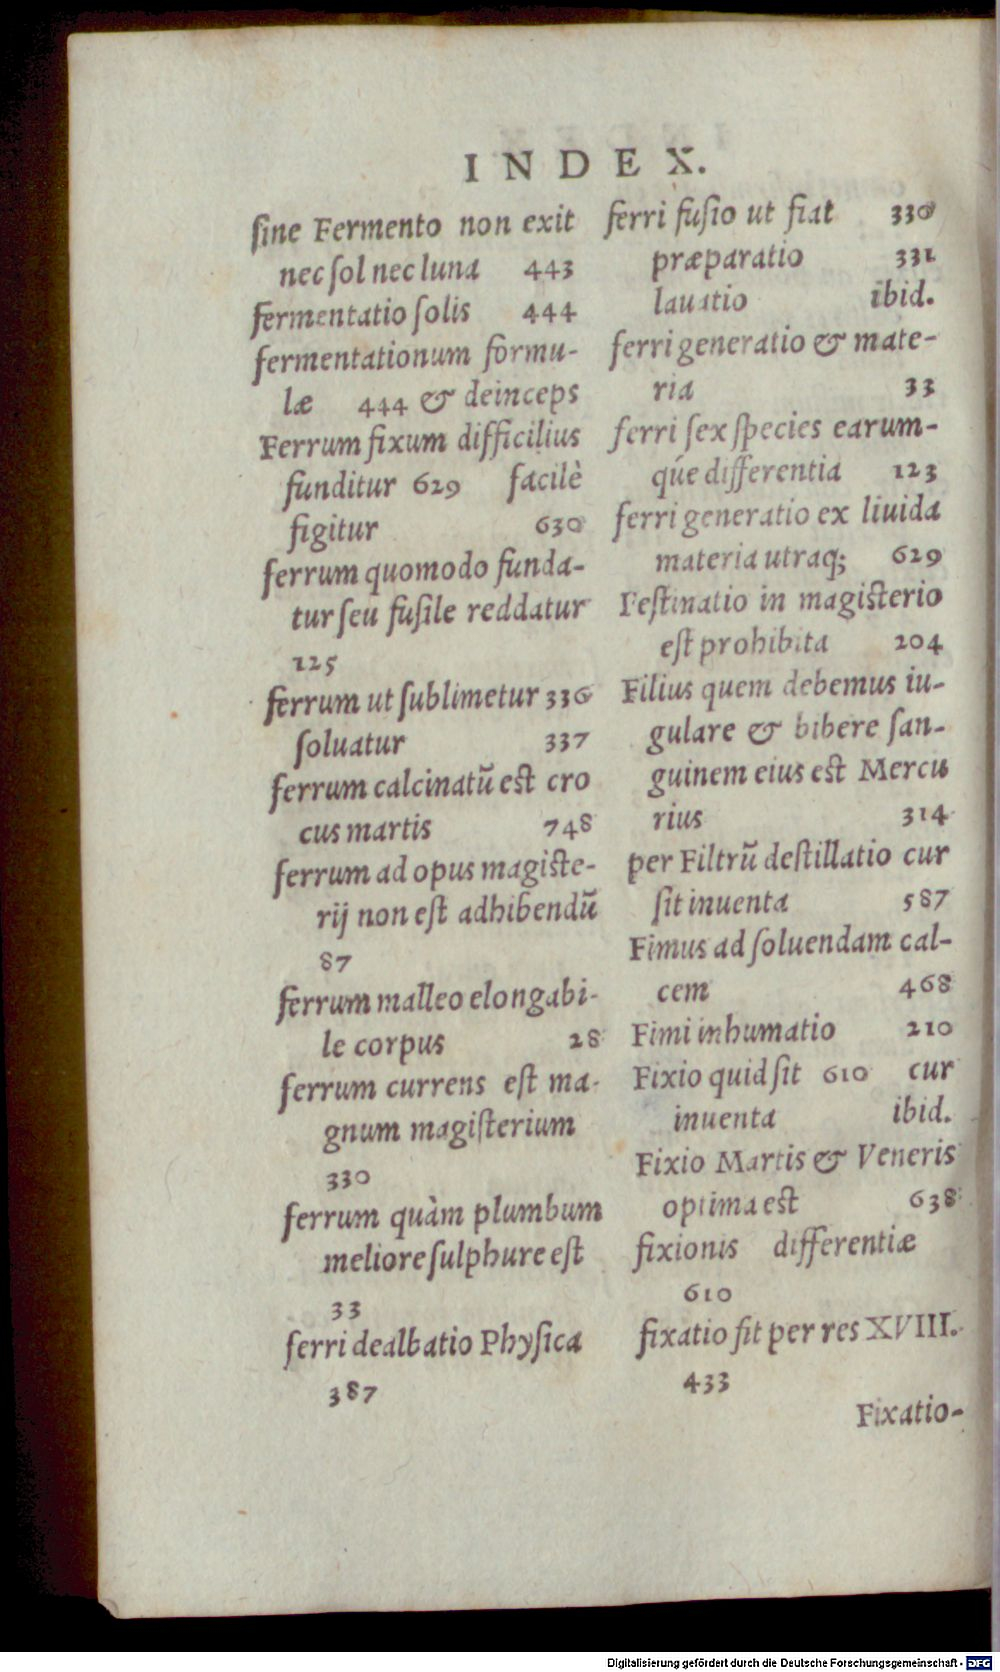 INDEX.
sine Fermento non exit
nec sol nec luna 443
fermentatio solis 444
fermentationum formu-
læ 444 & deinceps
Ferrum fixum difficilius
funditur 629 facilè
figitur 630
ferrum quomodo funda-
tur seu fusile reddatur
125
ferrum ut sublimetur 336
soluatur 337
ferrum calcinatũ est cro
cus martis 748
ferrum ad opus magiste-
rij non est adhibendũ
87
ferrum malleo elongabi-
le corpus 28
ferrum currens est ma-
gnum magisterium
330
ferrum quàm plumbum
meliore sulphure est
33
ferri dealbatio Physica
387
ferri fusio ut fiat 330
præparatio 331
lauatio ibid.
ferri generatio & mate-
ria 33
ferri sex species earum-
q́ue differentia 123
ferri generatio ex liuida
materia utraq; 629
Festinatio in magisterio
est prohibita 204
Filius quem debemus iu-
gulare & bibere san-
guinem eius est Mercu
rius 314
per Filtrũ destillatio cur
sit inuenta 587
Fimus ad soluendam cal-
cem 468
Fimi inhumatio 210
Fixio quid sit 610 cur
inuenta ibid.
Fixio Martis & Veneris
optima est 638
fixionis differentiæ
610
fixatio fit per res XVIII.
433
Fixatio-
Digitalisierung gefördert durch die Deutsche Forschungsgemeinschaft - DFG